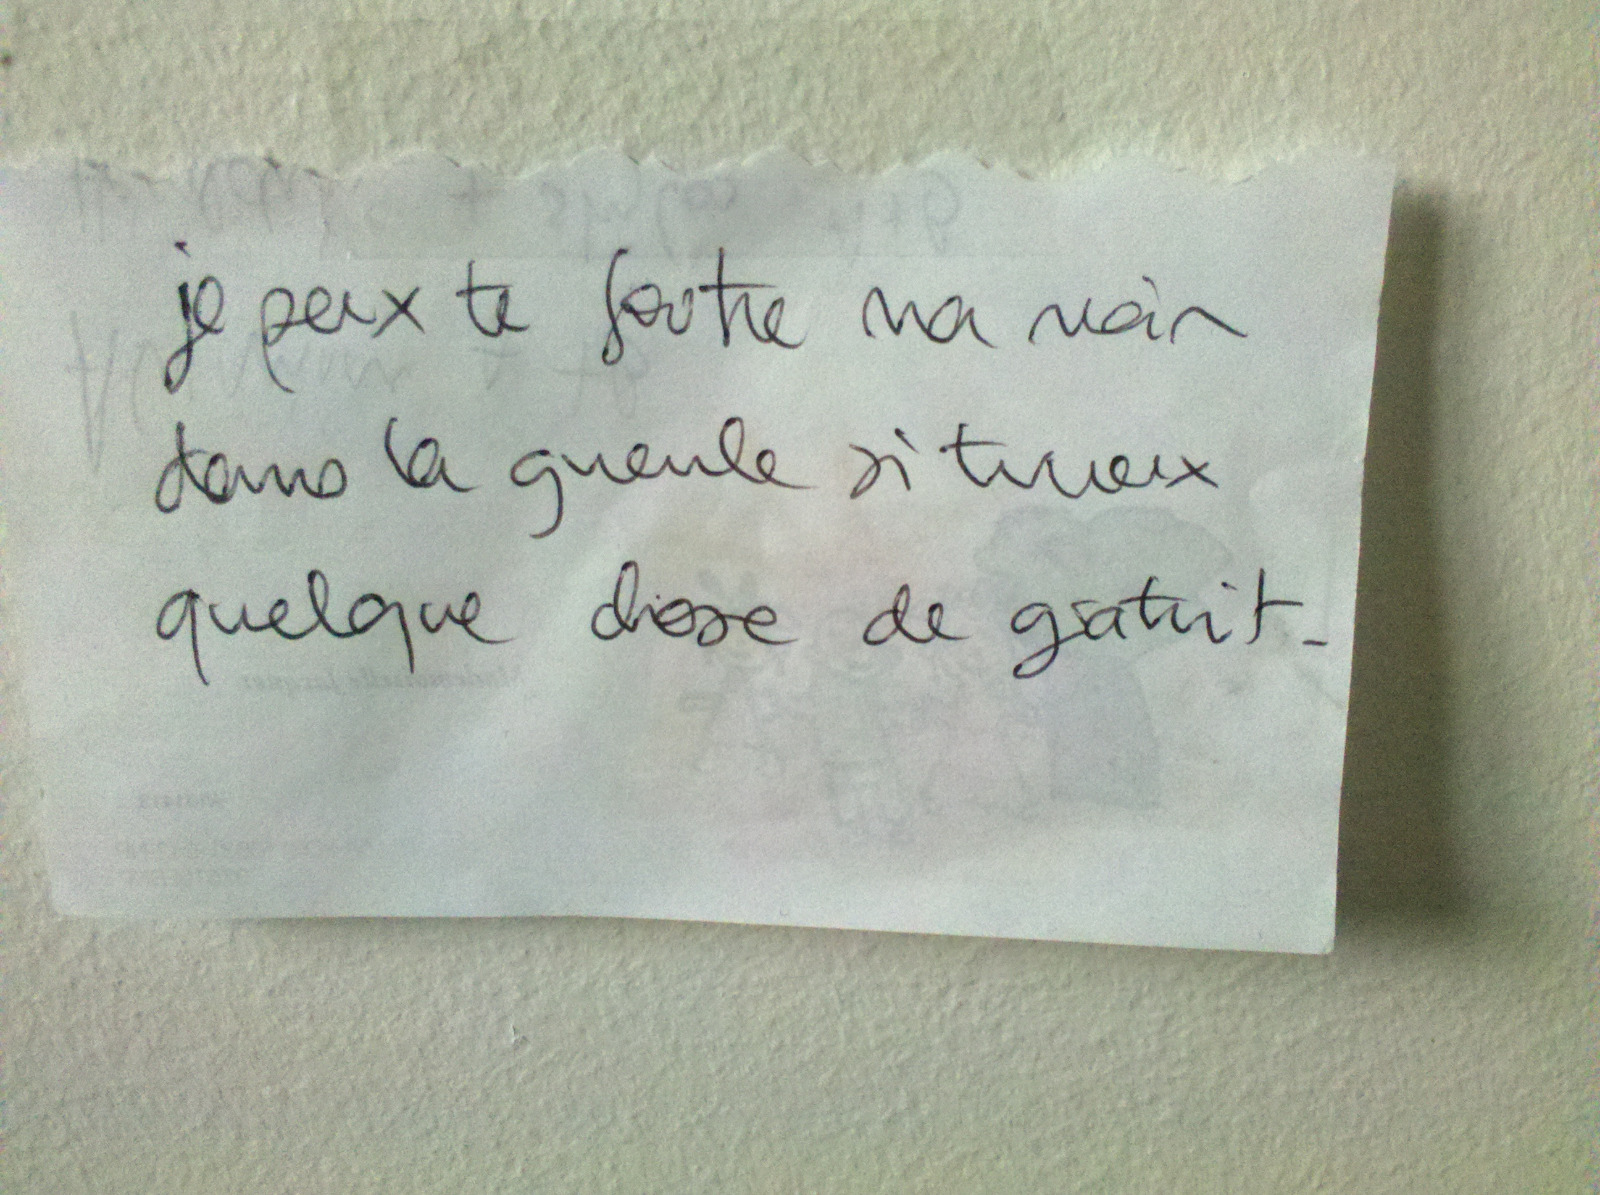 je peux te foutre ma main
dans la gueule si tu veux
quelque chose de gratuit.
Mademoiselle Jacques